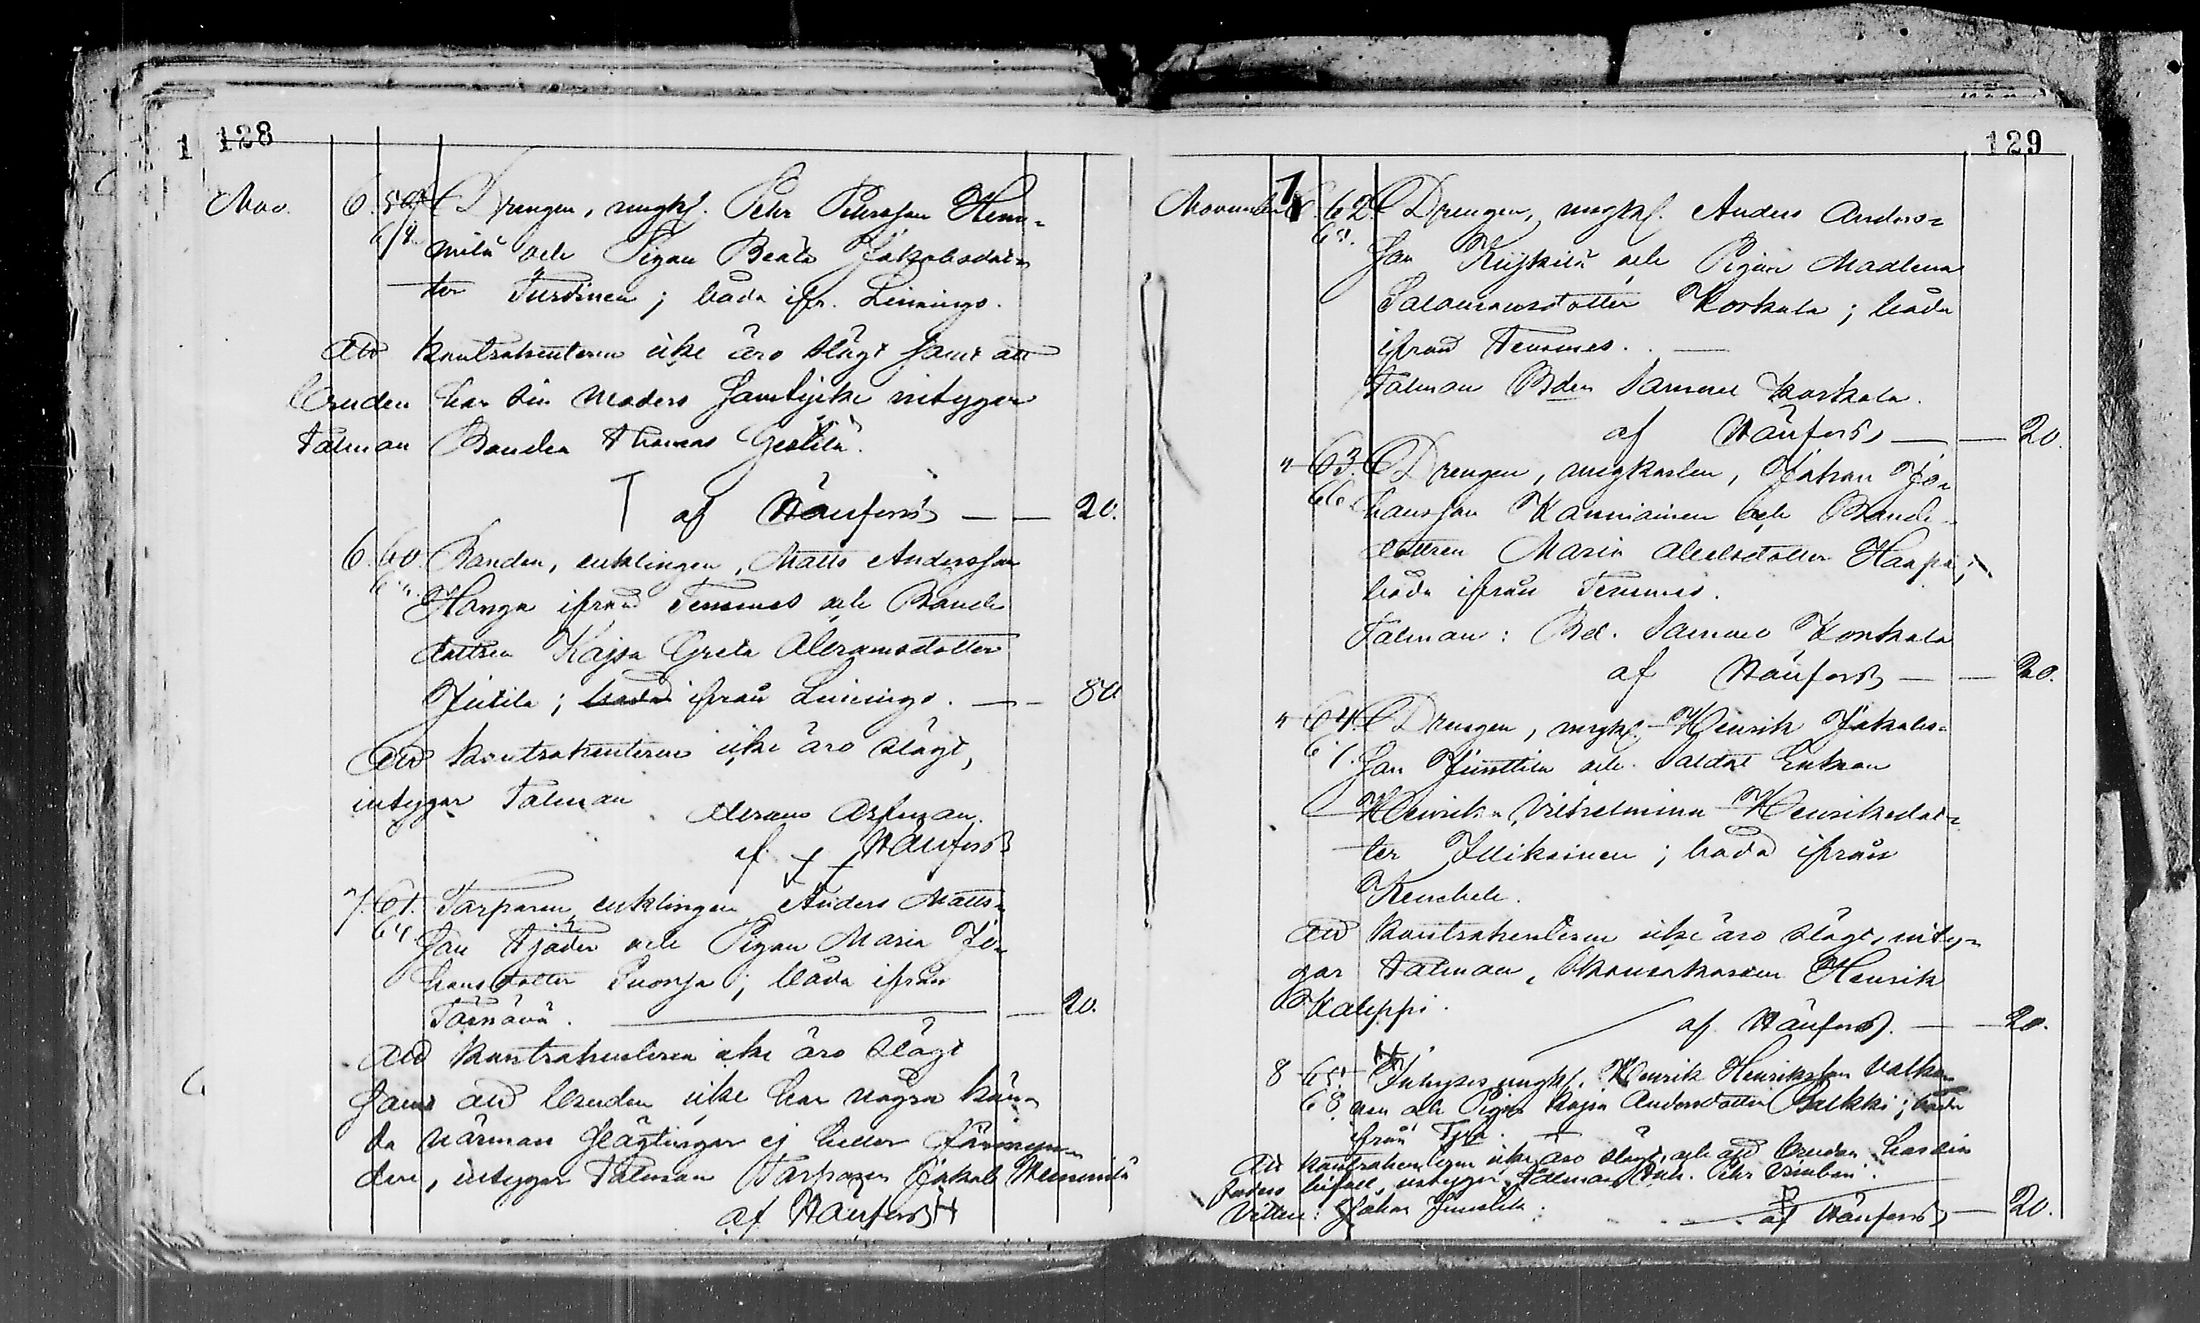 128
Nov. 6. 59 Drengen, ungk. Pehr Pehrsson Hem=
milä och Pigan Beata Jakobsdot=
ter Turdinen; båda ifr. Limingo.
Att kontrahenterne icke äro slägt samt att
bruden har sin moders samtycke intygar
Talman Bonden Thomas
af Wänfors — — 20.
6. 60. Bonden, enklingen, Matts Andersson
Hanga ifrån Temmes och Bonde
dottren Kajsa Greta Abramsdotter
Jutila; ifrån Limingo. — — 80
Att kontrahenterne icke äro slägt,
intygar Talman Abram
af Wänfors
7. 61. Torparen enklingen Anders Matts=
son Tjäder och Pigan Maria Jo=
hansdotter Suorsa; båda ifrån
64
Törnävä. — — 20.
Att kontrahenterne icke äro slägt
samt att bruden icke har några kän=
da närmare slägtingar ej heller
dare, intygar Talman Torparen Jakob Hemmilä
af Wänfors
129
November 7 62 Drengen, ungk. Anders Anders=
son och Pigan Madlena
Salomonsdotter Korkala; båda
ifrån Temmes. —
Talman Bden Samuel Korkala.
af Wänfors — — 20.
" 63. Drengen, ungkarlen, Johan Jo=
66 hansson Kanniainen och Bonde
dottren Maria Abelsdotter Haapa;
båda ifrån Temmes.
Talman: Bd. Samuel Korkala
af Wänfors — — 20.
" 64. Drengen, ungk. Henrik Jakobs=
son Junttila och Soldat Enkan
Henrika Vilhelmina Henriksdot=
ter Illikainen; båda ifrån
Kembele.
Att kontrahenterne icke äro slägt, inty=
gar Talman, Henrik
Kaleppi.
af Wänfors. — — 20.
8 65. Inhyses ungk. Henrik Henriksson Valka
68 nen och Pigan Kajsa Andersdotter Palkki; båda
ifrån
Att kontrahenterne icke äro slägt, och att bruden har sin
faders bifall, intygar Talman Pehr
Vittne: Johan
af Wänfors — 20.